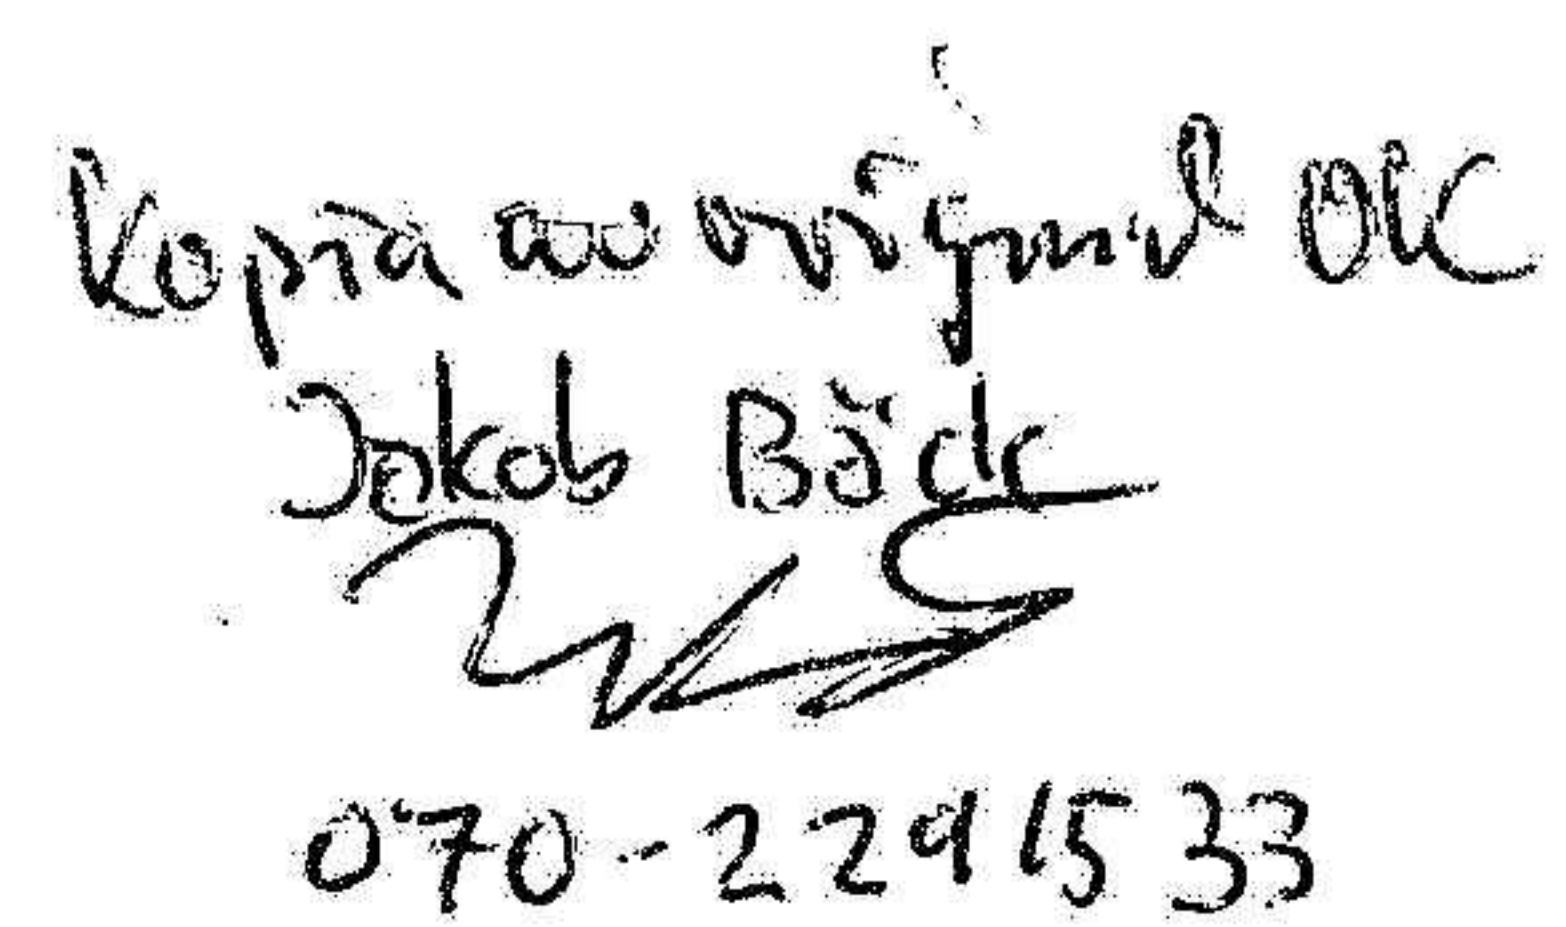 Kopia av original OK
Jakob Bäck
070-229 15 33